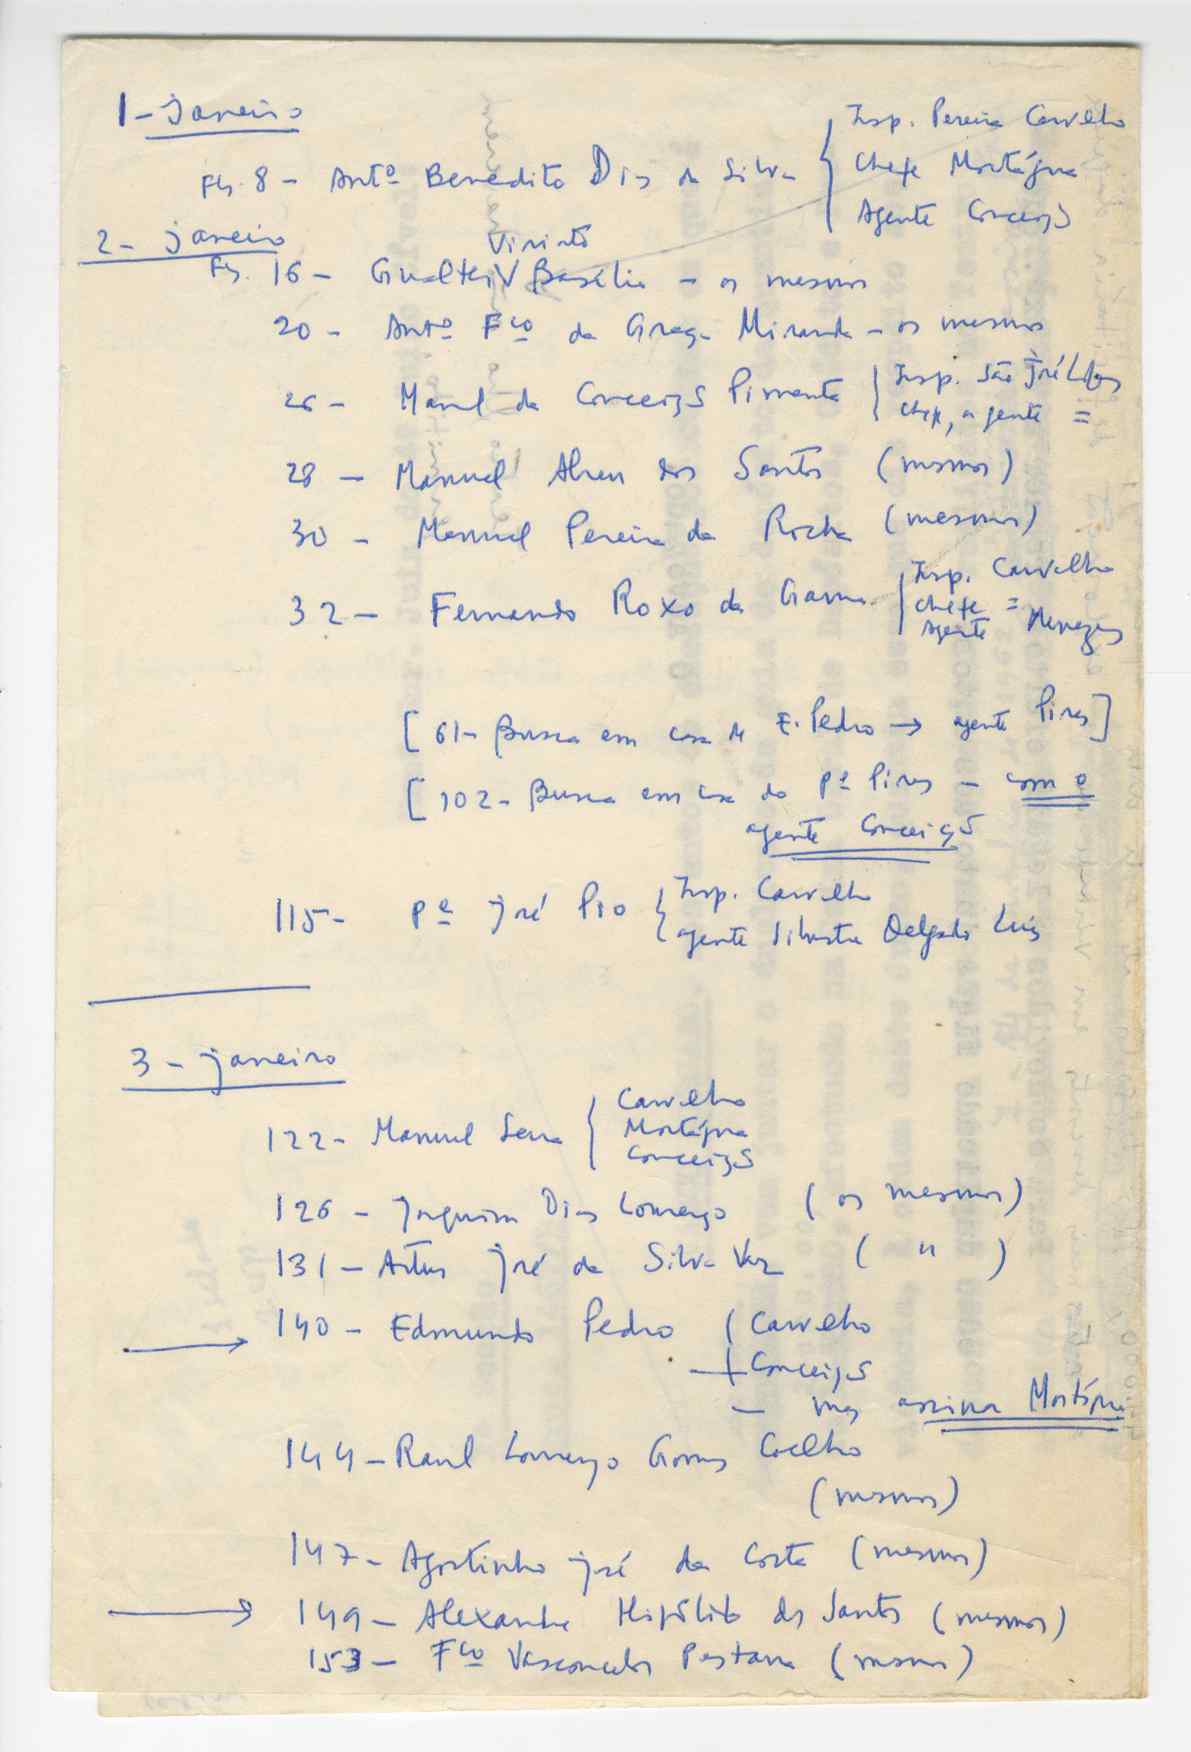 1- Janeiro
Insp. Pereira Carvalho
Fls. 8 - Antº Benedito Dias da Silva
Chefe Mortágua
Agente Conceição
2- janeiro
Viriato
Fls. 16 - Gualter V Basílio - os mesmos
20 - Antº Fco da Graça Miranda - os mesmos
26 - Manuel da Conceição Pimenta
Insp. São José Lopes
Chefe, agente =
28 - Manuel Alves dos Santos (mesmos)
30 - Manuel Pereira da Rocha (mesmos)
32 - Fernando Roxo da Gama
Insp. Carvalho
Chefe =
Agente Menezes
[61- Busca em casa de E. Pedro → agente Pires]
[102- Busca em casa do Pe Pires - com o
agente Conceição
115- Pe José Pio
Insp. Carvalho
agente Silvestre Delgado Luís
3 - janeiro
122- Manuel Serra
Carvalho
Mortágua
Conceição
126 - Joaquim Dias Lourenço (os mesmos)
131 - Artur José da Silva Vaz ( " )
→ 140 - Edmundo Pedro ( Carvalho
+ Conceição
- mas assina Mortágua
144 - Raul Lourenço Gomes Coelho
(mesmos)
147 - Agostinho José da Costa (mesmos)
→ 149 - Alexandre Hipólito dos Santos (mesmos)
153 - Fco Vasconcelos Pestana (mesmos)